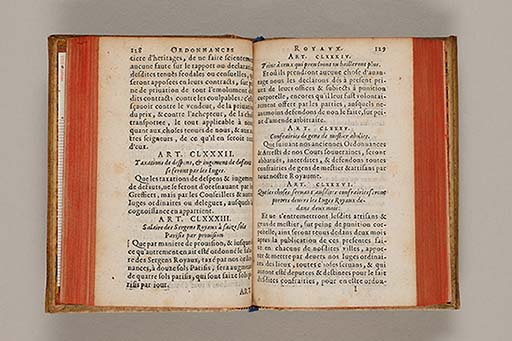 128 ORDONNANCES
tiere d'heritages, de ne faire sciemment
aucune faute sur le rapport ou declaration
desdites tenues feodales ou censuelles, qui
seront apposees en leurs contracts, sur peine
de privation de tout l'emolument des
dits contracts contre les coulpables: c'est à
sçavoir contre le vendeur, de la privation
du prix, & contre l'achepteur, de la chose
transportee, le tout applicable à nous
quant aux choses tenues de nous, & aux autres
seigneurs, de ce qu'il en seroit tenu
d'eux.
ART. CLXXXII.
Taxations de despens, & iugement de defaux
se feront par les Iuges.
Que les taxations de despens & iugemens
de defauts, ne se feront d'oresenauant par les
Greffiers, mais par les Conseillers & autres
Iuges ordinaires ou deleguez, ausquels la
cognoissance en appartient.
ART. CLXXXIII.
Salaire des Sergens Royaux à saize sols
Parisis par prouision
Que par maniere de prouision, & iusques à
ce qu'autrement en ait esté ordonné le salaire
des Sergens Royaux, taxé par noz ordonnances,
à douze sols Parisis, sera augmenté
de quatre sols parisis, qui sont saize sols parisis
par iour.
ART.
ROYAVX. 129
ART. CLXXXIV.
Peine à ceux qui prendront ou bailleront plus.
Et où ils prendront aucune chose d'auantage
nous les declarons dés à present priuez
de leurs offices & subiects à punition
corporelle, encores qu'il leur fust volontairement
offert par les parties, ausquels neantmoins
defendons de non le faire, sur peine
d'amende arbitraire.
ART. CLXXXV.
Confrairies de gens de mestier abolies.
Que suiuant nos anciennes Ordonnances
& Arrests de nos Cours souueraines, seront
abbatues, interdites, & defendons toutes
confrairies de gens de mestier & artisans par
tout nostre Royaume.
ART. CLXXXVI.
Quelles choses seruans ausdites confrairies seront
portees deuers les Iuges Royaux dedans
deux mois.
Et ne s'entremettront lesdits artisans &
gens de mestier, sur peine de punition corporelle,
ains seront tenus dedans deux mois
apres la publication de ces presentes faite
en chacune de nosdites villes, apporter
& mettre par deuers nos Iuges ordinaires
des lieux, toutes & vnes choses seruans, & qui
auront esté deputees & destinees pour le fait
desdites confrairies, pour en estre ordon-
I